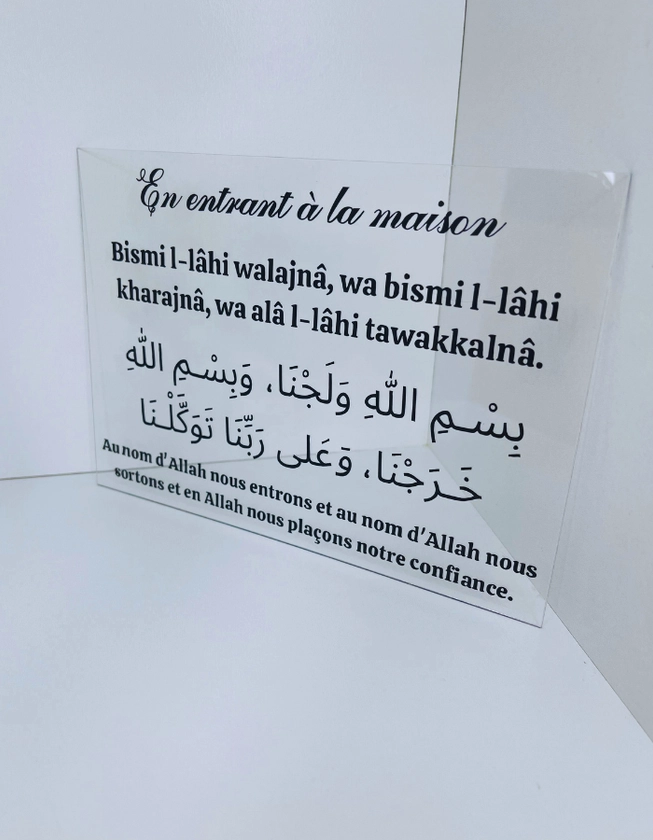 En entrant à la maison
Bismi l-lâhi walajnâ, wa bismi l-lâhi
kharajnâ, wa alâ l-lâhi tawakkalnâ.
بِسْمِ اللّٰهِ وَلَجْنَا، وَبِسْمِ اللّٰهِ
خَرَجْنَا، وَعَلى رَبِّنَا تَوَكَّلْنَا
Au nom d'Allah nous entrons et au nom d'Allah nous
sortons et en Allah nous plaçons notre confiance.